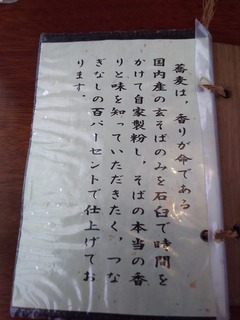 蕎麦は、香りが命である。
国内産の玄そばのみを石臼で時間を
かけて自家製粉し、そばの本当の香
りと味を知っていただきたく、つな
ぎなしの百パーセントで仕上げてお
ります。